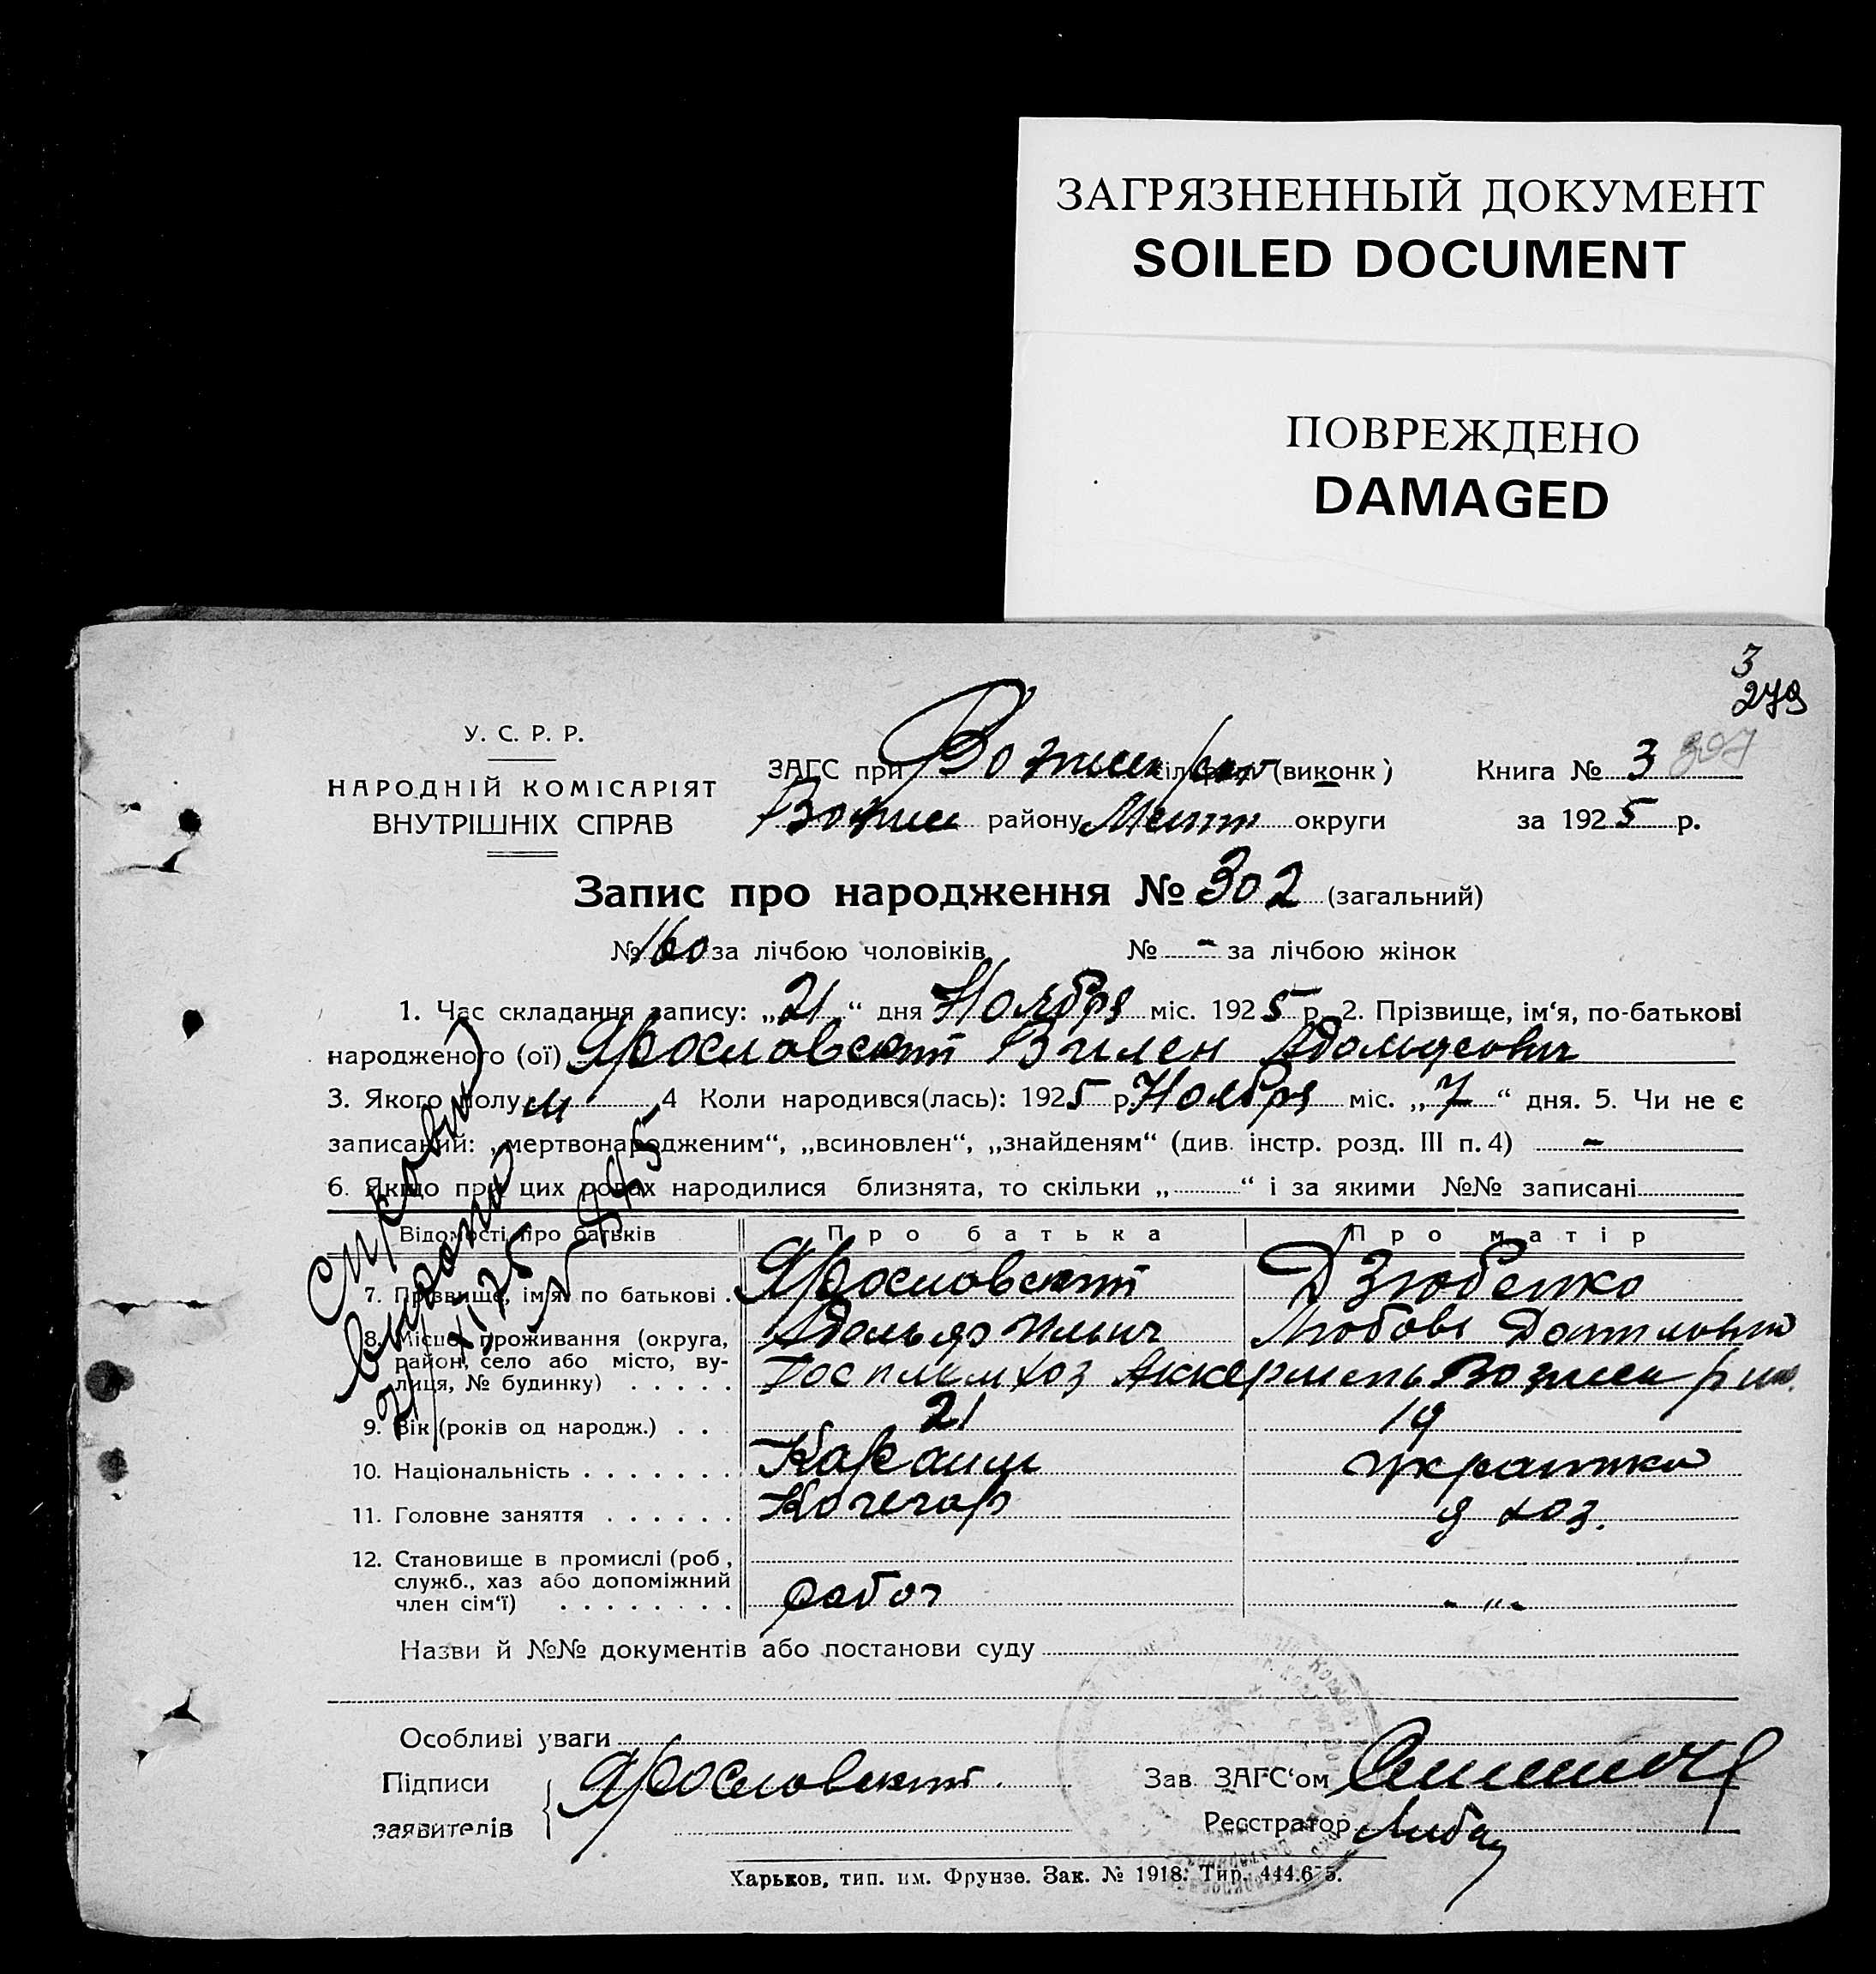 ЗАГРЯЗНЕННЫЙ ДОКУМЕНТ
SOILED DOCUMENT
ПОВРЕЖДЕНО
DAMAGED
3
279
307
У. С. Р. Р.
НАРОДНІЙ КОМІСАРІЯТ
ВНУТРІШНІХ СПРАВ
ЗАГС при Вознес (виконк)
району Мелит округи
Книга № 3
за 1925 р.
Запис про народження № 302 (загальний)
№ 160 за лічбою чоловіків № - за лічбою жінок
1. Час складання запису: „21“ дня Ноября міс. 1925 р. 2. Прізвище, ім‘я, по-батькові
народженого (ої) Ярославский Вилен Адольфович
3. Якого полу м 4 Коли народився(лась): 1925 р. Ноября міс. „7“ дня. 5. Чи не є
записаний: „мертвонародженим“, „всиновлен“, „знайденям“ (див. інстр. розд. III п. 4) -
6. Якщо при цих родах народилися близнята, то скільки „ “ і за якими №№ записані
Відомості про батьків Про батька Про матір
7. Прізвище, ім‘я, по батькові . Ярославский Дзюбенко
Адольф Ильич Любовь
8. Місце проживання (округа, район, село або місто, вулиця, № будинку) . . . . . Госплемхоз Аккермень Вознес
9. Вік (років од народж.) . . 21 19
10. Національність . . . . . . . Караим украинка
11. Головне заняття . . . . . . Кочегар д хоз.
12. Становище в промислі (роб., служб., хаз або допоміжний член сім‘ї) . . . . . . . . рабоч - „ -
Назви й №№ документів або постанови суду
Особливі уваги
Підписи
заявителів
Ярославский
Зав. ЗАГС‘ом
Реєстратор
Харьков, тип. им. Фрунзе. Зак. № 1918. Тир. 444.675.